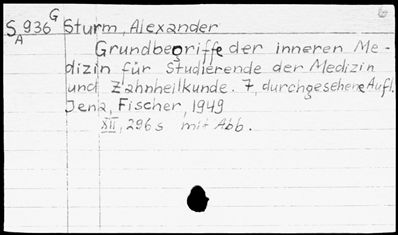 S_A 936 G Sturm, Alexander
Grundbegriffe der inneren Me-
dizin für Studierende der Medizin
und Zahnheilkunde. 7, durchgesehene Aufl.
Jena, Fischer, 1949
XII, 296 s mit Abb.